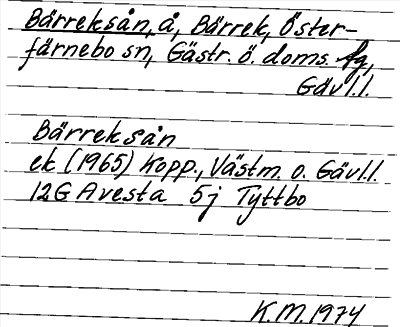 Bärreksån, å, Bärrek, Öster-
färnebo sn, Gästr. ö. doms. fg,
Gävl.l.
Bärreksån
ek (1965) Kopp., Västm. o. Gävl.l.
12G Avesta 5j Tyttbo
K.M. 1974